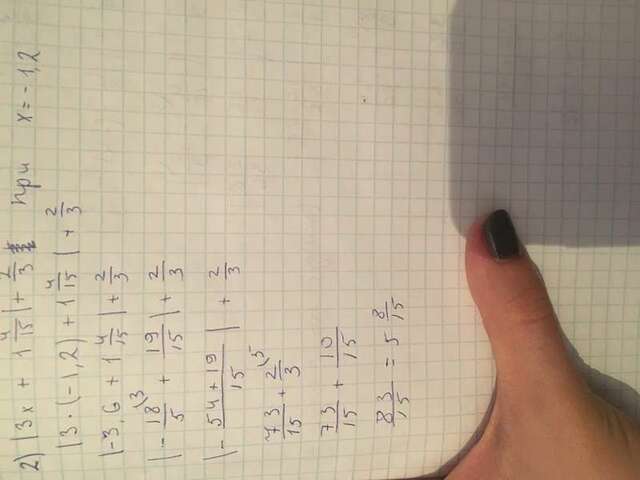 2) |3x + 1 4/15| + 2/3 при x = - 1,2
|3 · (-1,2) + 1 4/15| + 2/3
|-3,6 + 1 4/15| + 2/3
|- 18/5 \3 + 19/15| + 2/3
|- 54 + 19/15| + 2/3
73/15 + 2/3 \5
73/15 + 10/15
83/15 = 5 8/15